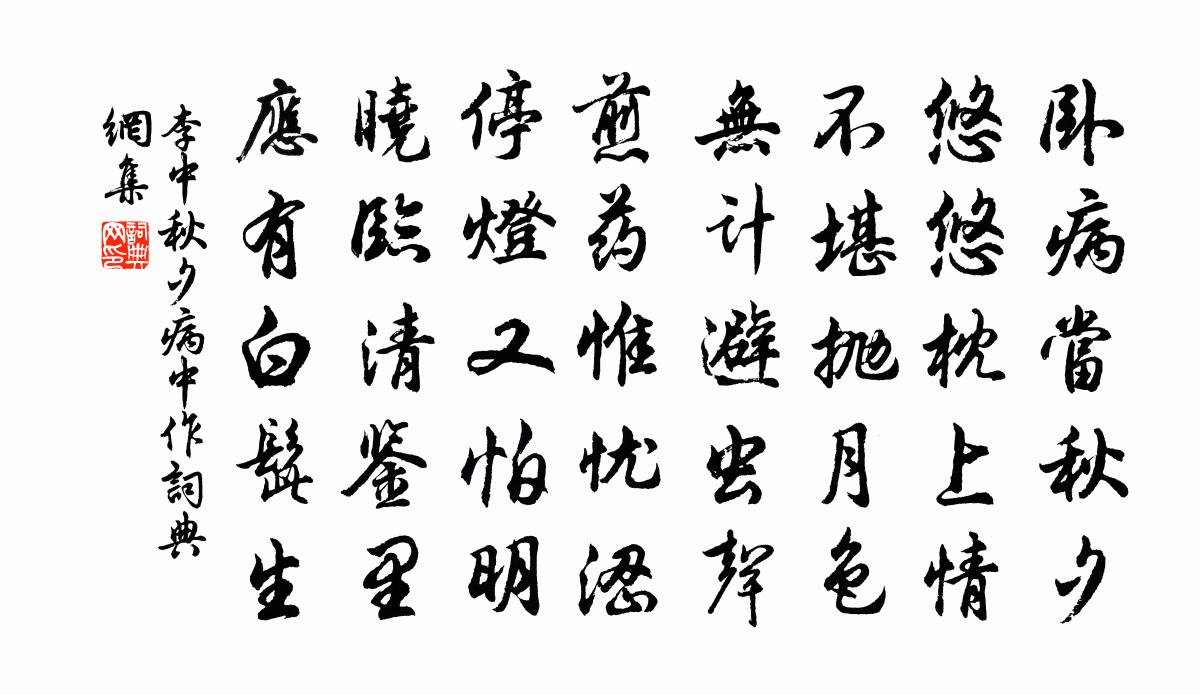 卧病當秋夕
悠悠枕上情
不堪抛月色
無計避虫聲
煎药惟忧涩
停燈又怕明
曉臨清鉴里
應有白髭生
李中秋夕病中作詞典
網集
詞典
网印